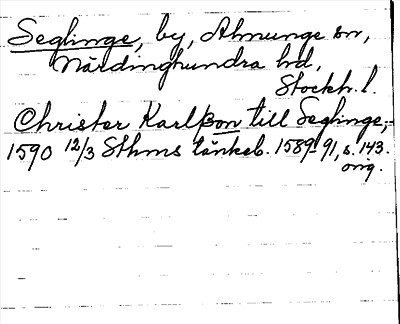 Seglinge, by, Almunge sn,
Närdinghundra hd,
Stockh. l.
Christer Karlsson till Seglinge,-
1590 12/3 Sthms tänkeb. 1589-91, s. 143.
orig.